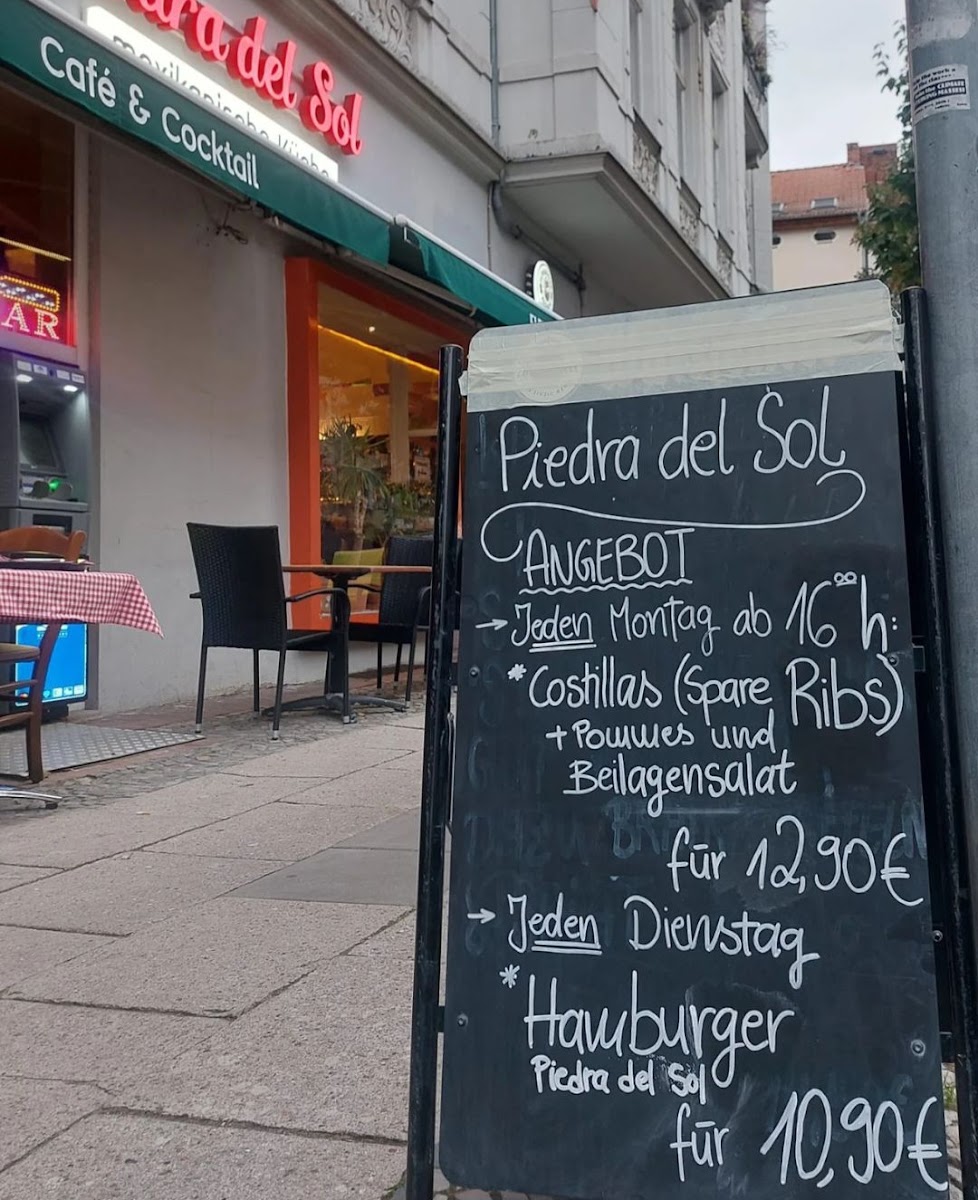 del Sol
mexikanische Küche
Café & Cocktail
AR
Piedra del Sol
ANGEBOT
→ Jeden Montag ab 16⁰⁰ h:
* Costillas (Spare Ribs)
+ Pommes und
Beilagensalat
für 12,90€
→ Jeden Dienstag
* Hamburger
Piedra del Sol
für 10,90€